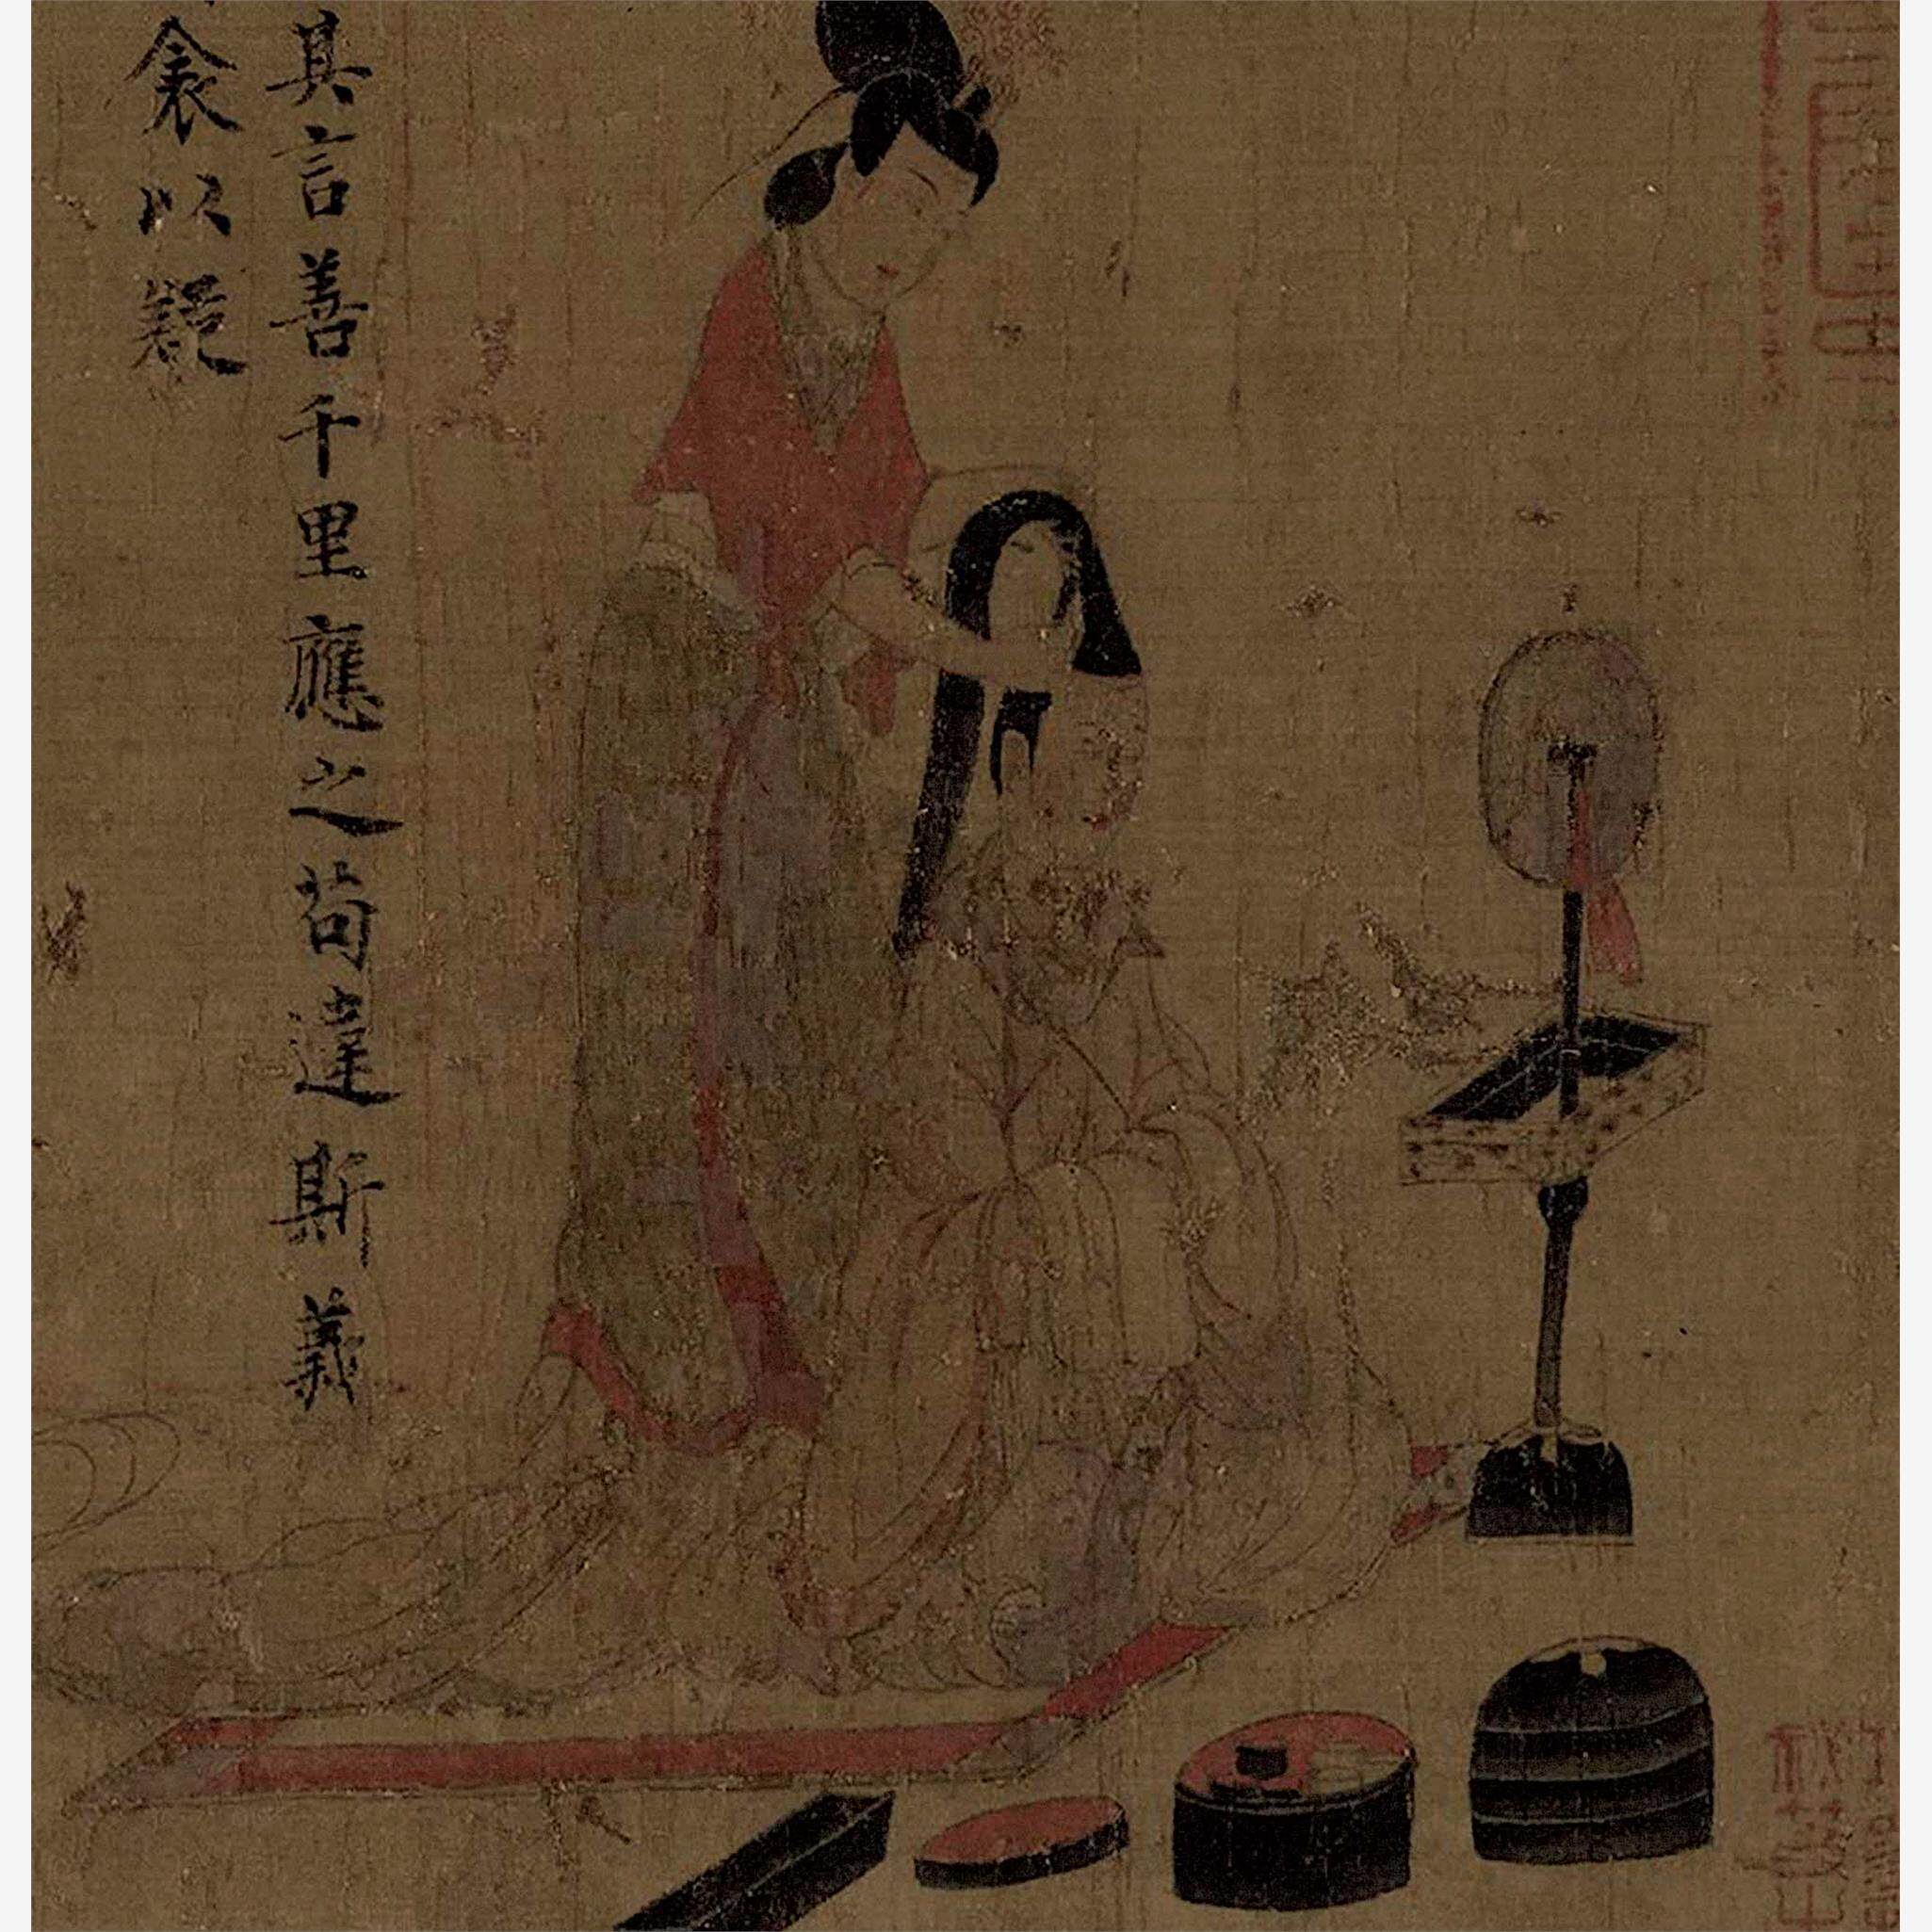 其言善千里應之苟違斯義
衾以疑